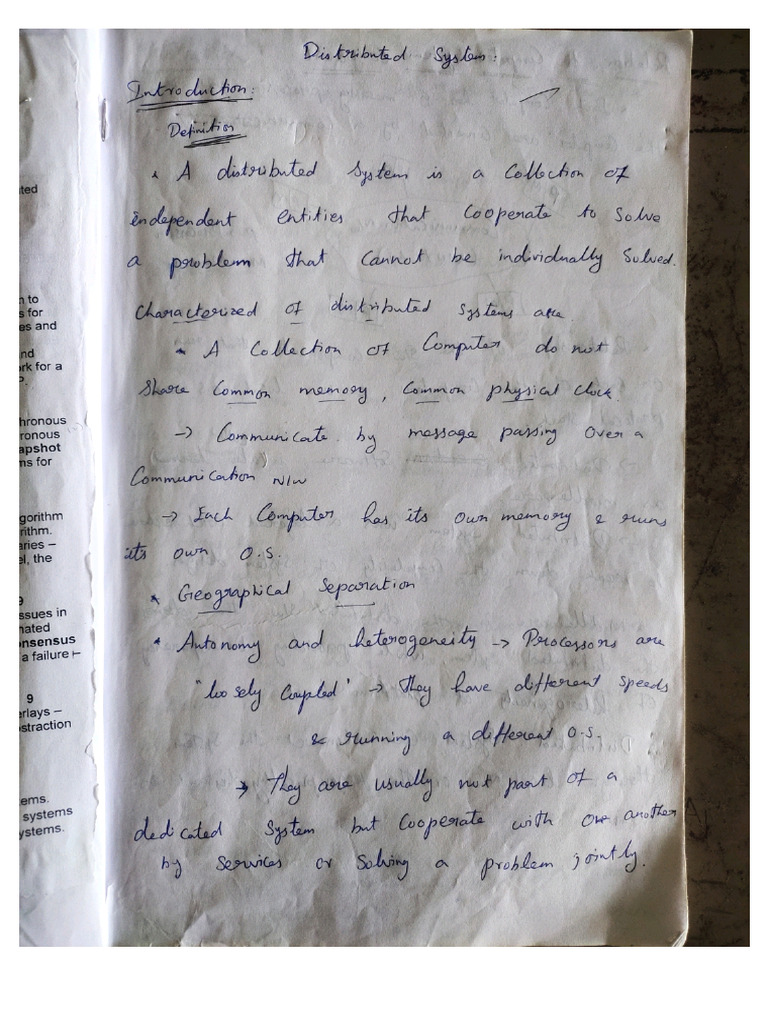 Distributed System:
Introduction:
Definition
* A distributed System is a Collection of
independent entities that Cooperate to Solve
a problem that Cannot be individually Solved.
Characterized of distributed systems are
* A Collection of Computer do not
Share Common memory, Common physical clock.
-> Communicate by message passing over a
Communication N/W
-> Each Computer has its own memory & runs
its own O.S.
* Geographical Separation
* Autonomy and heterogeneity -> Processors are
"loosely Coupled" -> They have different speeds
& running a different O.S.
-> They are usually not part of a
dedicated System but Cooperate with one another
by Services or Solving a problem jointly.
ted
n to
s for
es and
nd
rk for a
hronous
ronous
apshot
ns for
gorithm
rithm.
aries –
el, the
9
ssues in
nated
onsensus
a failure –
9
erlays –
straction
ems.
systems
ystems.